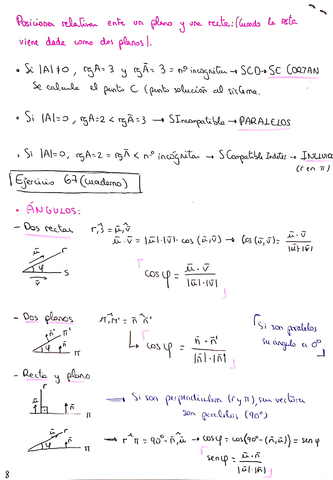 Posiciones relativas entre un plano y una recta: (Cuando la recta
viene dada como dos planos).
• Si |A|≠0, rgA=3 y rgĀ=3=nº incógnitas → SCD → SE CORTAN
Se calcula el punto C (punto solución al sistema.
• Si |A|=0, rgA=2<rgĀ=3 → SIncompatible → PARALELOS
• Si |A|=0, rgA=2=rgĀ<nº incógnitas → SCompatible Indeter → INCLUIDA
(r en π)
Ejercicio 67 (cuaderno)
• ÁNGULOS:
- Dos rectas r,s = ū,v̄
ū·v̄ = |ū|·|v̄|·cos(ū,v̄) → cos(ū,v̄) = ū·v̄ / |ū|·|v̄|
ū r
φ s
v̄
cos φ = ū·v̄ / |ū|·|v̄|
- Dos planos π,π' = n̄ n̄'
n̄' π' n̄ φ π
cos φ = n̄·n̄' / |n̄|·|n̄'|
Si son paralelos
su ángulo es 0º
- Recta y plano
r ū n̄ π
→ Si son perpendiculares (r y π), sus vectores
son paralelos (90º)
ū r φ n̄ π
→ r^π = 90º - n̄,ū → cos φ = cos(90º-(n̄,ū)) = sen φ
sen φ = ū·n̄ / |ū|·|n̄|
8